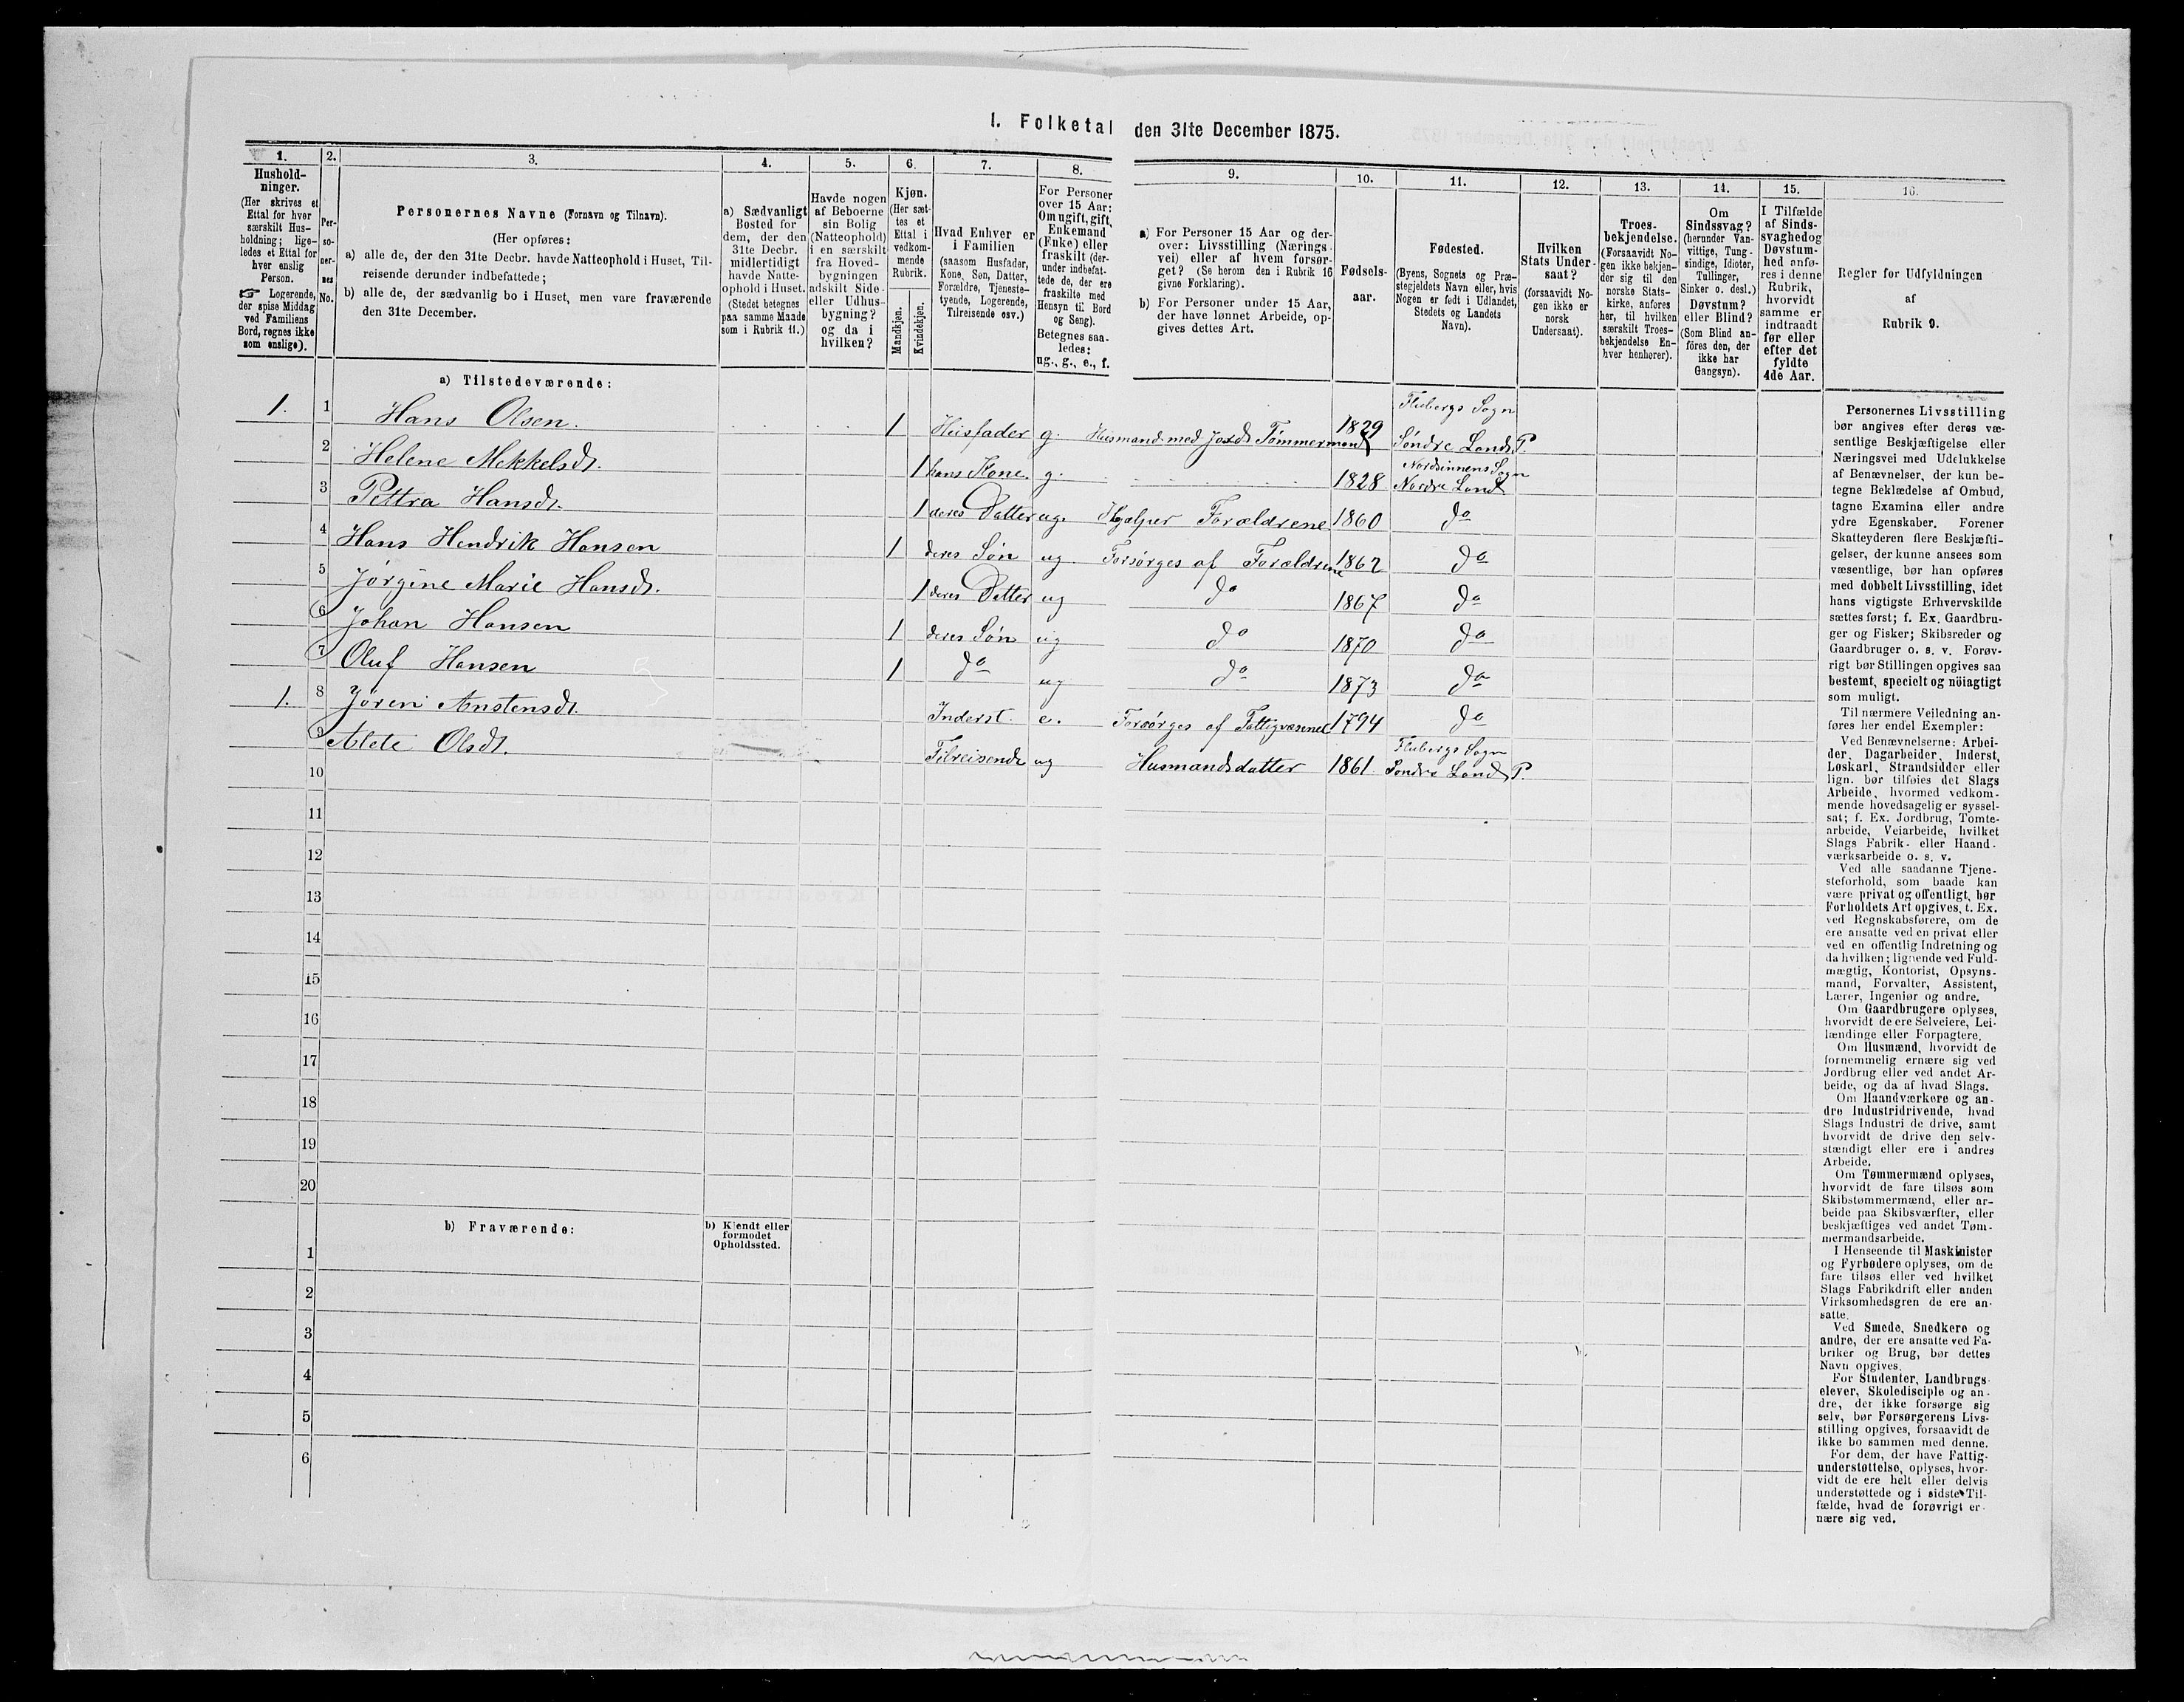 1. Folketal den 31te December 1875.
1.
Hushold-
ninger.
(Her skrives et
Ettal for hver
særskilt Hus-
holdning; lige-
ledes et Ettal for
hver enslig
Person.
☞ Logerende,
der spise Middag
ved Familiens
Bord, regnes ikke
som enslige).
2.
Per-
so-
ner-
nes
No.
3.
Personernes Navne (Fornavn og Tilnavn).
(Her opføres:
a) alle de, der den 31te Decbr. havde Natteophold i Huset, Til-
reisende derunder indbefattede;
b) alle de, der sædvanlig bo i Huset, men vare fraværende
den 31te December.
4.
a) Sædvanligt
Bosted for
dem, der den
31te Decbr.
midlertidigt
havde Natte-
ophold i Huset.
(Stedet betegnes
paa samme Maade
som i Rubrik 11.)
5.
Havde nogen
af Beboerne
sin Bolig
(Natteophold)
i en særskilt
fra Hoved-
bygningen
adskilt Side-
eller Udhus-
bygning?
og da i
hvilken?
6.
Kjøn.
(Her sæt-
tes et
Ettal i
vedkom-
mende
Rubrik.
Mandkjøn.
Kvindekjøn.
7.
Hvad Enhver er
i Familien
(saasom Husfader,
Kone, Søn, Datter,
Forældre, Tjeneste-
tyende, Logerende,
Tilreisende osv.)
8.
For Personer
over 15 Aar:
Om ugift, gift,
Enkemand
(Enke) eller
fraskilt (der-
under indbefat-
tede de, der ere
fraskilte med
Hensyn til Bord
og Seng).
Betegnes saa-
ledes:
ug., g., e., f.
9.
a) For Personer 15 Aar og der-
over: Livsstilling (Nærings-
vei) eller af hvem forsør-
get? (Se herom den i Rubrik 16
givne Forklaring).
b) For Personer under 15 Aar,
der have lønnet Arbeide, op-
gives dettes Art.
10.
Fødsels-
aar.
11.
Fødested.
(Byens, Sognets og Præ-
stegjeldets Navn eller, hvis
Nogen er født i Udlandet,
Stedets og Landets
Navn).
12.
Hvilken
Stats Under-
saat?
(forsaavidt No-
gen ikke er
norsk
Undersaat).
13.
Troes-
bekjendelse.
(Forsaavidt No-
gen ikke bekjen-
der sig til den
norske Stats-
kirke, anføres
her, til hvilken
særskilt Troes-
bekjendelse En-
hver henhører).
14.
Om
Sindssvag?
(herunder Van-
vittige, Tung-
sindige, Idioter,
Tullinger,
Sinker o. desl.)
Døvstum?
eller Blind?
(Som Blind an-
føres den, der
ikke har
Gangsyn).
15.
I Tilfælde
af Sinds-
svaghed og
Døvstum-
hed anfø-
res i denne
Rubrik,
hvorvidt
samme er
indtraadt
før eller
efter det
fyldte
4de Aar.
16.
Regler for Udfyldningen
af
Rubrik 9.
a) Tilstedeværende:
1. 1 Hans Olsen. 1 Husfader g. Husmand med Jord Tømmermand 1829 Flubergs Sogn Søndre Lands P.
2 Helene Mekkelsdt. 1 hans Kone g. 1828 Nordsinnens Sogn Nordre Land
3 Pettra Hansdt. 1 deres Datter ug. Hjælper Forældrene 1860 do
4 Hans Hendrik Hansen 1 deres Søn ug. Forsørges af Forældrene 1862 do
5 Jørgine Marie Hansdt. 1 deres Datter ug do 1867 do
6 Johan Hansen 1 deres Søn ug do 1870 do
7 Oluf Hansen 1 do ug do 1873 do
1. 8 Jøren Anstensdt. Inderst. e. Forsørges af Fattigvæsenet 1794 do
9 Alete Olsdt. Tilreisende ug Husmandsdatter 1861 Flubergs Sogn Søndre Lands P.
10
11
12
13
14
15
16
17
18
19
20
b) Fraværende:
b) Kjendt eller
formodet
Opholdssted.
1
2
3
4
5
6
Personernes Livsstilling
bør angives efter deres væ-
sentlige Beskjæftigelse eller
Næringsvei med Udelukkelse
af Benævnelser, der kun be-
tegne Beklædelse af Ombud,
tagne Examina eller andre
ydre Egenskaber. Forener
Skatteyderen flere Beskjæfti-
gelser, der kunne ansees som
væsentlige, bør han opføres
med dobbelt Livsstilling, idet
hans vigtigste Erhvervskilde
sættes først; f. Ex. Gaardbru-
ger og Fisker; Skibsreder og
Gaardbruger o. s. v. Forøv-
rigt bør Stillingen opgives saa
bestemt, specielt og nöiagtigt
som muligt.
Til nærmere Veiledning an-
føres her endel Exempler:
Ved Benævnelserne: Arbei-
der, Dagarbeider, Inderst,
Løskarl, Strandsidder eller
lign. bør tilføies det Slags
Arbeide, hvormed vedkom-
mende hovedsagelig er syssel-
sat; f. Ex. Jordbrug, Tomte-
arbeide, Veiarbeide, hvilket
Slags Fabrik- eller Haand-
værksarbeide o. s. v.
Ved alle saadanne Tjene-
steforhold, som baade kan
være privat og offentligt, bør
Forholdets Art opgives, t. Ex.
ved Regnskabsførere, om de
ere ansatte ved en privat eller
ved en offentlig Indretning og
da hvilken; lignende ved Fuld-
mægtig, Kontorist, Opsyns-
mand, Forvalter, Assistent,
Lærer, Ingeniør og andre.
Om Gaardbrugere oplyses,
hvorvidt de ere Selveiere, Lei-
lændinge eller Forpagtere.
Om Husmænd, hvorvidt de
fornemmelig ernære sig ved
Jordbrug eller ved andet Ar-
beide, og da af hvad Slags.
Om Haandværkere og an-
dre Industridrivende, hvad
Slags Industri de drive, samt
hvorvidt de drive den selv-
stændigt eller ere i andres
Arbeide.
Om Tømmermænd oplyses,
hvorvidt de fare tilsøs som
Skibstømmermænd, eller ar-
beide paa Skibsværfter, eller
beskjæftiges ved andet Tøm-
mermandsarbeide.
I Henseende til Maskinister
og Fyrbødere oplyses, om de
fare tilsøs eller ved hvilket
Slags Fabrikdrift eller anden
Virksomhedsgren de ere an-
satte.
Ved Smede, Snedkere og
andre, der ere ansatte ved Fa-
briker og Brug, bør dettes
Navn opgives.
For Studenter, Landbrugs-
elever, Skoledisciple og an-
dre, der ikke forsørge sig
selv, bør Forsørgerens Livs-
stilling opgives, forsaavidt de
ikke bo sammen med denne.
For dem, der have Fattig-
understøttelse, oplyses, hvor-
vidt de ere helt eller delvis
understøttede og i sidste Til-
fælde, hvad de forøvrigt er-
nære sig ved.